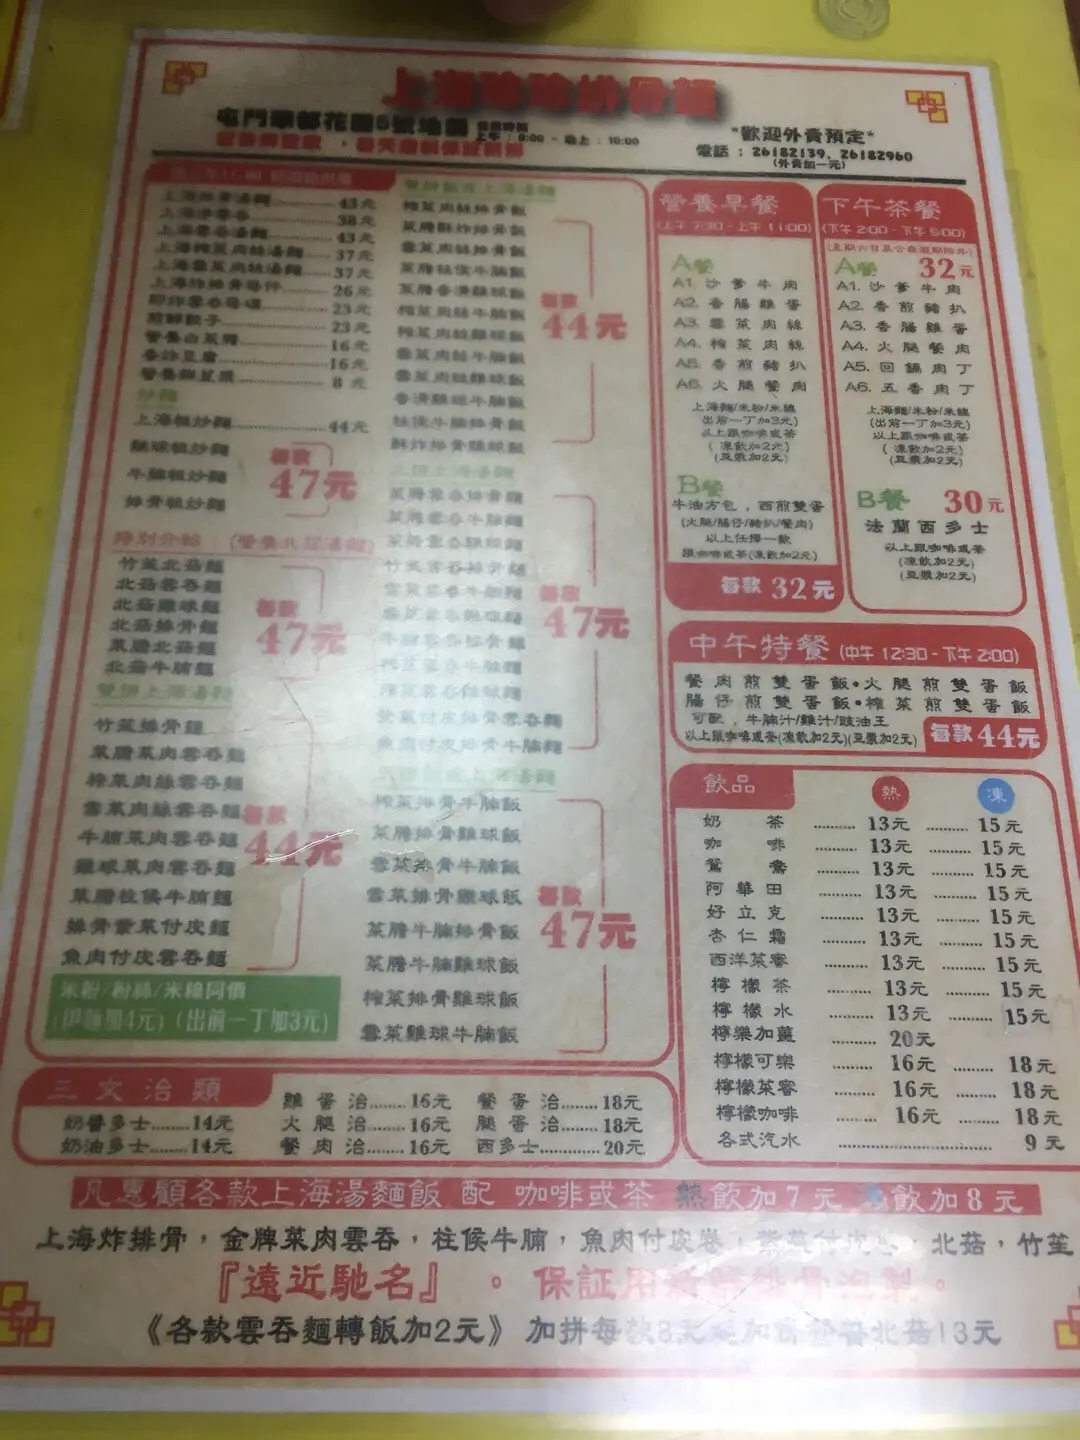 上海 排骨麵
屯門 都花園5號地
上午：8:00 - 晚上：10:00
*歡迎外賣預定*
電話：26182139, 26182960
(外賣加一元)
上海排骨湯麵 43元
上海淨雲吞 38元
上海雲吞湯麵 43元
上海榨菜肉絲湯麵 37元
上海雪菜肉絲湯麵 37元
上海炸排骨每件 26元
即炸雲吞每碟 23元
煎鮮餃子 23元
營養白菜 16元
香炸豆腐 16元
營養鮮豆漿 8元
炒麵
上海粗炒麵 44元
雞球粗炒麵
牛腩粗炒麵
排骨粗炒麵
每款 47元
特別介紹：(營養北菇湯麵)
竹笙北菇麵
北菇雲吞麵
北菇雞球麵
北菇排骨麵
菜膽北菇麵
北菇牛腩麵
每款 47元
雙拼上海湯麵
竹笙排骨麵
菜膽菜肉雲吞麵
榨菜肉絲雲吞麵
雪菜肉絲雲吞麵
牛腩菜肉雲吞麵
雞球菜肉雲吞麵
菜膽柱侯牛腩麵
排骨紫菜付皮麵
魚肉付皮雲吞麵
每款 44元
米粉/粉絲/米線同價
(伊麵加4元) (出前一丁加3元)
榨菜肉絲排骨飯
菜膽酥炸排骨飯
雪菜肉絲排骨飯
菜膽柱侯牛腩飯
菜膽香滑雞球飯
榨菜肉絲牛腩飯
榨菜肉絲雞球飯
雪菜肉絲牛腩飯
雪菜肉絲雞球飯
香滑雞球牛腩飯
柱侯牛腩排骨飯
酥炸排骨雞球飯
每款 44元
三拼上海湯麵
菜膽雲吞排骨麵
菜膽雲吞牛腩麵
菜膽雲吞雞球麵
竹笙雲吞排骨麵
雲吞
牛腩雲吞排骨麵
紫菜付皮排骨雲吞麵
魚肉付皮排骨牛腩麵
每款 47元
榨菜排骨牛腩飯
菜膽排骨雞球飯
雪菜排骨牛腩飯
雪菜排骨雞球飯
菜膽牛腩排骨飯
菜膽牛腩雞球飯
榨菜排骨雞球飯
雪菜雞球牛腩飯
每款 47元
營養早餐
(上午 7:30 - 上午 11:00)
A餐
A1. 沙爹牛肉
A2. 香腸雞蛋
A3. 雪菜肉絲
A4. 榨菜肉絲
A5. 香煎豬扒
A6. 火腿餐肉
上海麵/米粉/米線
(出前一丁加3元)
以上跟咖啡或茶
(凍飲加2元)
(豆漿加2元)
B餐
牛油方包，西煎雙蛋
(火腿/腸仔/豬扒/餐肉)
以上任擇一款
跟咖啡或茶(凍飲加2元)
每款 32元
下午茶餐
(下午 2:00 - 下午 5:00)
(星期六日及公眾假期除外)
A餐 32元
A1. 沙爹牛肉
A2. 香煎豬扒
A3. 香腸雞蛋
A4. 火腿餐肉
A5. 回鍋肉丁
A6. 五香肉丁
上海麵/米粉/米線
(出前一丁加3元)
以上跟咖啡或茶
(凍飲加2元)
(豆漿加2元)
B餐 30元
法蘭西多士
以上跟咖啡或茶
(凍飲加2元)
(豆漿加2元)
中午特餐 (中午 12:30 - 下午 2:00)
餐肉煎雙蛋飯•火腿煎雙蛋飯
腸仔煎雙蛋飯•榨菜煎雙蛋飯
可配，牛腩汁/雞汁/豉油王
以上跟咖啡或茶(凍飲加2元)(豆漿加2元)
每款 44元
飲品 熱 凍
奶茶 13元 15元
咖啡 13元 15元
鴛鴦 13元 15元
阿華田 13元 15元
好立克 13元 15元
杏仁霜 13元 15元
西洋菜蜜 13元 15元
檸檬茶 13元 15元
檸檬水 13元 15元
檸樂加薑 20元
檸檬可樂 16元 18元
檸檬菜蜜 16元 18元
檸檬咖啡 16元 18元
各式汽水 9元
三文治類
奶醬多士 14元
奶油多士 14元
雞蛋治 16元
火腿治 16元
餐肉治 16元
餐蛋治 18元
腿蛋治 18元
西多士 20元
凡惠顧各款上海湯麵飯 配 咖啡或茶 熱飲加7元 凍飲加8元
上海炸排骨，金牌菜肉雲吞，柱侯牛腩，魚肉付皮卷，紫菜付皮卷，北菇，竹笙
『遠近馳名』。保証用新鮮排骨泡製。
《各款雲吞麵轉飯加2元》 加拼每款8元 北菇13元